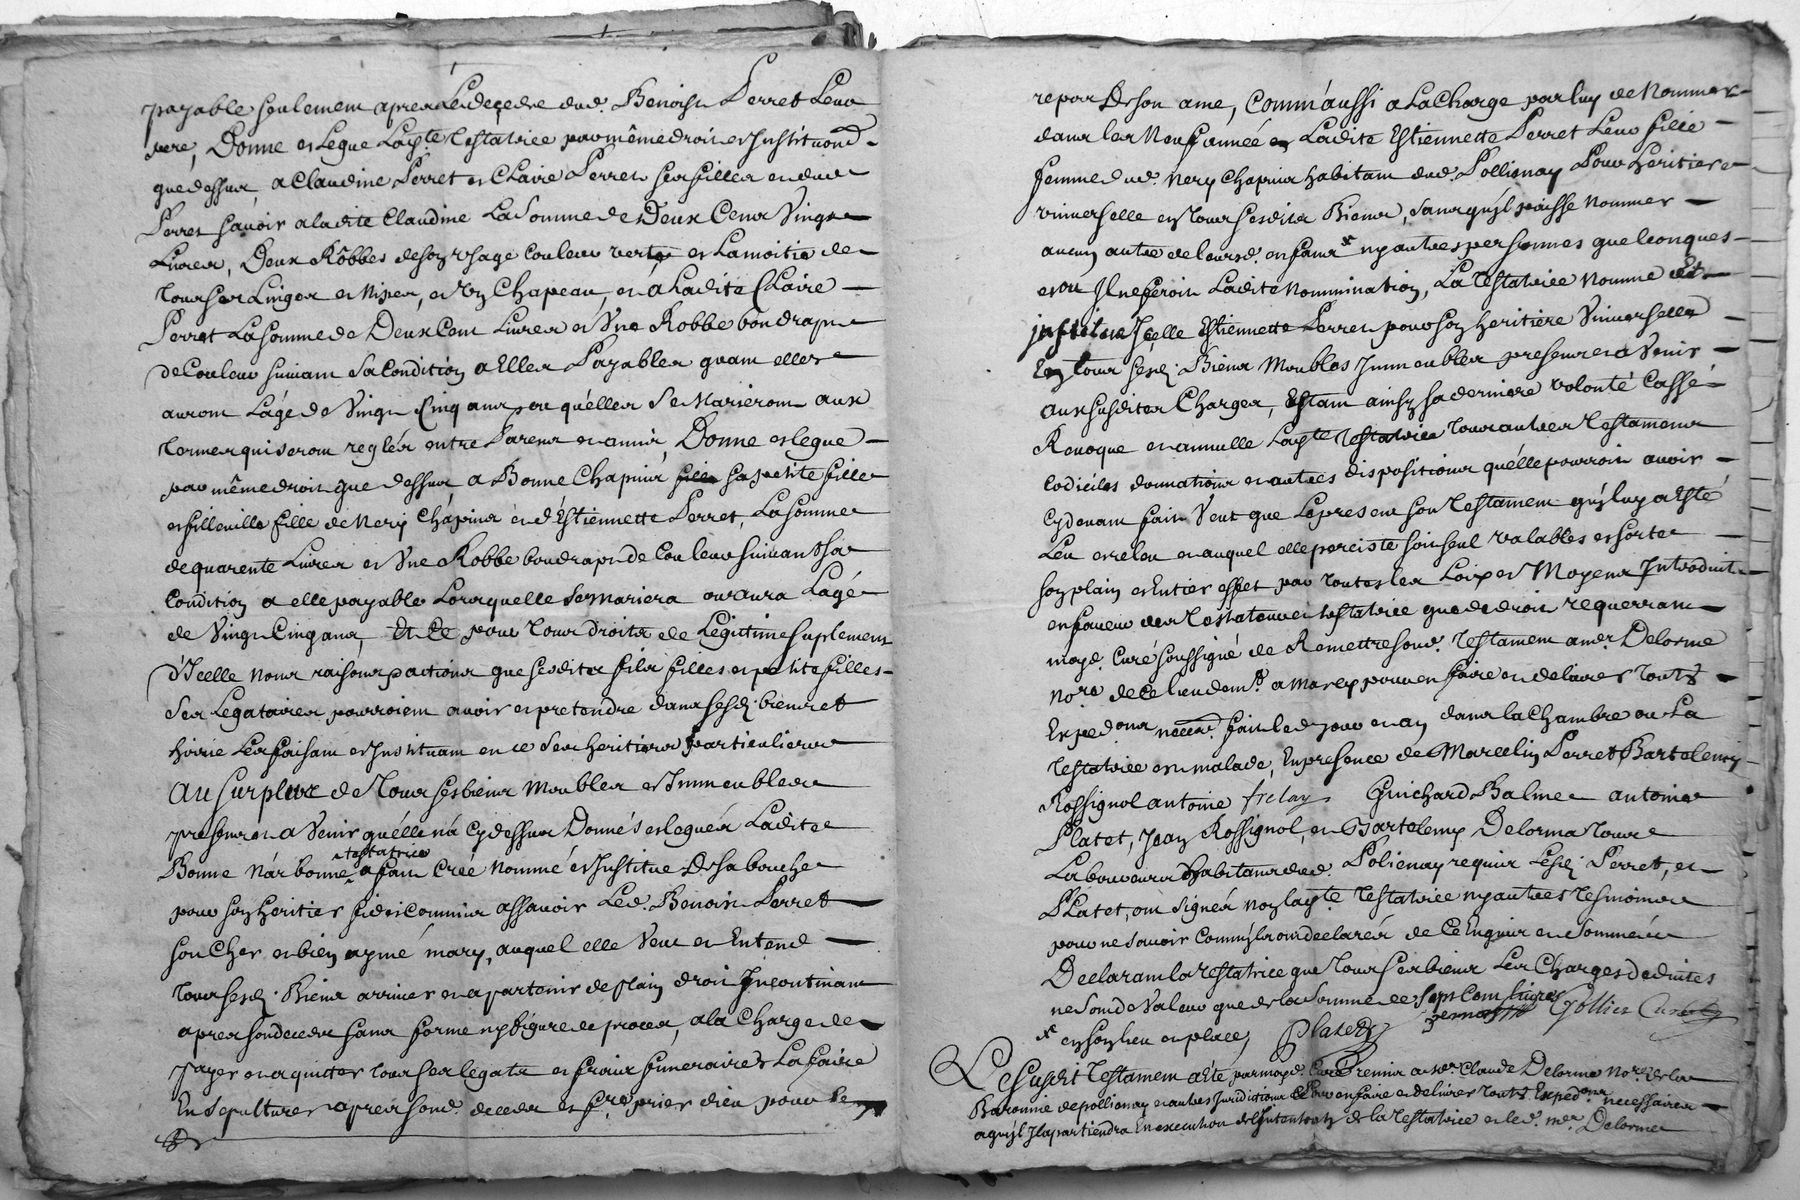 payable seulement apres Le deçedz dud. Benoist Perret Leur
pere, Donne et Legue Lad.te Testatrice par même droit et Institu.on d.
que dessus a Claudine Perret et Claire Perret ses filles et dud.
Perret sçavoir a ladite Claudine La Somme de Deux Cens Vingt
Livres, Deux Rôbbes de son usage couleur verte et La moitie de
tous ses Linges et Nipes, et un Chapeau, et a Ladite Claire
Perret La somme de Deux Cent Livres et Une Robbe bon drap
de Couleur suivant Sa Condition a Elles Payables quant elles
auront L'âgé de Vingt Cinq ans, ou qu'elles Se Marieront aux
termes qui seront reglés entre Parens et amis, Donne et legue
par même droit que dessus a Bonne Chapuis fille sa petite fille
et filleulle fille de Nery Chapuis et d'Estiennette Perret, La somme
de quarente Livres et Une Robbe bon drap de Couleur suivant Sa
Condition a elle payable Lorsquelle Se mariera ou aura L'âgé
de Vingt Cinq ans, Et Ce pour tous droits de Legitime suplement
d'Icelle noms raisons actions que sesdites fils filles et petite filles
Ses Legataires pourroient avoir et pretendre dans sesd. biens et
hoirie Les faisant et Instituant en ce Ses heritiers particuliers
Au Surplus de Tous Ses biens Meubles et Immeubles
presens et a Venir qu'elle n'a Cy dessus Donnés et legués Ladite
testatrice
Bonne Nárbonne a fait Créé Nommé et Institue De sa bouche
pour son heritier fideicommis assavoir Led. Benoist Perret
son Cher et bien aymé mary, auquel elle Veut et Entend
tous sesd. Biens arriver et apartenir de plain droit Incontinant
apres son deceds sans forme ny figure de proces, a la Charge de
payer et aquitter tous ses legats et fraix funeraires La faire
Ensepulturer apres sond. deceds et f.re prier dieu pour le
repos de son ame, Comm'aussi a La Charge par luy de Nommer
dans les Neuf année Ladite Estiennette Perret Leur fille
femme dud. Nery Chapuis habitant dud. Pollionay Pour heritiere
universelle en tous sesdits Biens, sans qu'il puisse Nommer
aucun autre de leursd. enfans * ny autres personnes quelconques
et ou Il ne feroit Ladite Nommination, La Testatrice Nomme Et
institue Icelle Estiennette Perret pour son heritière Universelle
En tous sesd. Biens Meubles Immeubles presens et a Venir
aux susdites Charges, Estant ainsy sa derniere volonté Cassé
Revoque et annulle Lad.te Testatrice tous autres Testamens
Codiciles donnations et autres dispositions qu'elle pourroit avoir
Cy devant fait Veut que Le present son Testament qu'il luy a Esté
Leu et releu et auquel elle perciste soit seul valables et sorte
son plain et Entier effet par toutes les Loix et Moyens Introduit
en faveur des testateurs testatrice que de droit requerrant
moyd. Curé soussigné de Remettre sond. Testament a m.e Delorme
No.re de ce lieu dem.t a Marcy pour en faire et delivrer touts
Expedons necess. fait led. jour et an dans la Chambre ou La
Testatrice est malade, En presence de Marcelin Perret, Bartelemy
Rossignol antoine frelay Guichard Balme antoine
Platet, Jean Rossignol, et Bartelemy Delorma tous
Laboureurs habitans dud. Polienay requis Lesd. Perret, et
Platet, ont signés non lad.te Testatrice ny autres tesmoins
pour ne sçavoir Comm'ils ont declarés de Ce Enquis et Sommés
Declarant la testatrice que tous ses biens Les Charges deduites
ne sont de Valeur que de la Somme de Sept Cent Livres
* en son lieu et place, Platet Perret Gollier Curé
Le Susdit Testament a été par moyd. Curé remis a m.e Claude Delorme No.re de la
Baronnie de pollionay et autres Juridictions Pour en faire et delivrer touts Exped.ons necessaires
a qu'il Il apartiendra En execution de l'Intention de la Testatrice et led. m.e Delorme